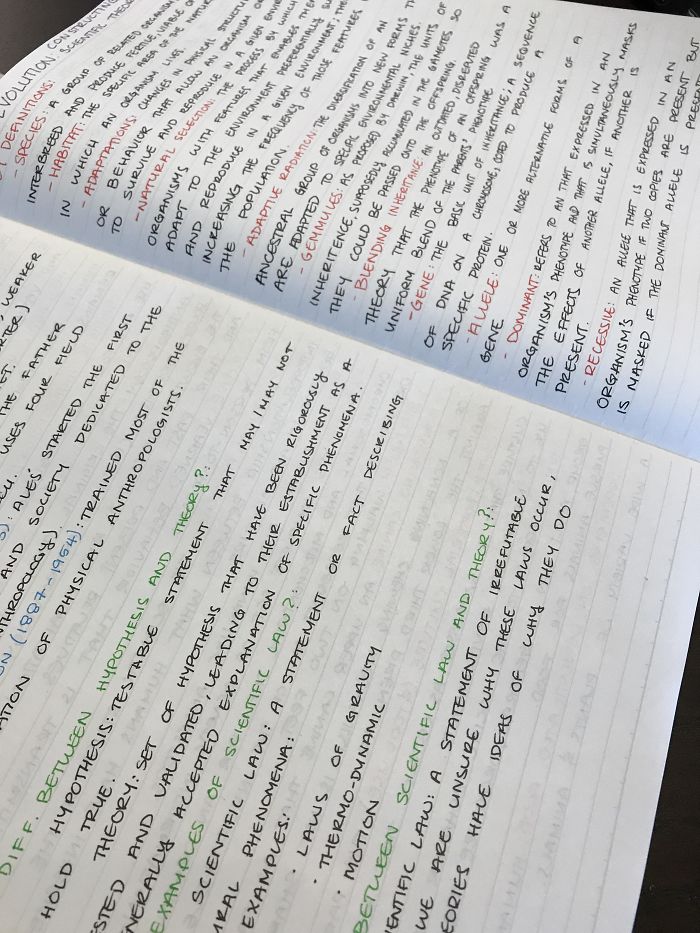 EVOLUTION: CONSTRUCTING
SCIENTIFIC THEORY
DEFINITIONS:
- SPECIES: A GROUP OF RELATED ORGANISMS
INTERBREED AND PRODUCE FERTILE, VIABLE
- HABITAT: THE SPECIFIC AREA OF THE NATURE
IN WHICH AN ORGANISM LIVES.
- ADAPTATIONS: CHANGES IN PHYSICAL STRUCTURE
OR BEHAVIOR THAT ALLOW AN ORGANISM OR
TO SURVIVE AND REPRODUCE IN A GIVEN
- NATURAL SELECTION: THE PROCESS BY WHICH
ORGANISMS WITH FEATURES THAT ENABLES THEM
ADAPT TO THE ENVIRONMENT PREFERENTIALLY
AND REPRODUCE IN A GIVEN ENVIRONMENT; THE
INCREASING THE FREQUENCY OF THOSE FEATURES
THE POPULATION.
- ADAPTIVE RADIATION: THE DIVERSIFICATION OF AN
ANCESTRAL GROUP OF ORGANISMS INTO NEW FORMS
ARE ADAPTED TO SPECIFIC ENVIRONMENTAL NICHES.
- GEMMULES: AS PROPOSED BY DARWIN, THE UNITS OF
INHERITENCE, SUPPOSEDLY ACCUMULATED IN THE GAMETES SO
THEY COULD BE PASSED ONTO THE OFFSPRING.
- BLENDING INHERITANCE: AN OUTDATED, DISPROVED
THEORY THAT THE PHENOTYPE OF AN OFFSPRING WAS A
UNIFORM BLEND OF THE PARENTS' PHENOTYPE
- GENE: THE BASIC UNIT OF INHERITANCE; A SEQUENCE
OF DNA ON A CHROMOSOME, CODED TO PRODUCE A
SPECIFIC PROTEIN.
- ALLELE: ONE OR MORE ALTERNATIVE FORMS OF A
GENE
- DOMINANT: REFERS TO AN THAT EXPRESSED IN AN
ORGANISM'S PHENOTYPE AND THAT IS SIMULTANEOUSLY MASKS
THE EFFECTS OF ANOTHER ALLELE, IF ANOTHER IS
PRESENT.
- RECESSIVE: AN ALLELE THAT IS EXPRESSED IN AN
ORGANISM'S PHENOTYPE IF TWO COPIES ARE PRESENT, BUT
IS MASKED IF THE DOMINANT ALLELE IS PRESENT
WEAKER
THE FATHER
USES FOUR FIELD
ALES' STARTED THE FIRST
AND SOCIETY DEDICATED TO THE
ANTHROPOLOGY)
(1887-1954): TRAINED MOST OF THE
OF PHYSICAL ANTHROPOLOGISTS.
DIFF. BETWEEN HYPOTHESIS AND THEORY?:
HYPOTHESIS: TESTABLE STATEMENT THAT MAY/MAY NOT
HOLD TRUE.
THEORY: SET OF HYPOTHESIS THAT HAVE BEEN RIGOROUSLY
TESTED AND VALIDATED, LEADING TO THEIR ESTABLISHMENT AS A
GENERALLY ACCEPTED EXPLANATION OF SPECIFIC PHENOMENA.
EXAMPLES OF SCIENTIFIC LAW?:
SCIENTIFIC LAW: A STATEMENT OR FACT DESCRIBING
PHENOMENA:
EXAMPLES:
· LAWS OF GRAVITY
· THERMO-DYNAMIC
· MOTION
BETWEEN SCIENTIFIC LAW AND THEORY?:
SCIENTIFIC LAW: A STATEMENT OF IRREFUTABLE
WE ARE UNSURE WHY THESE LAWS OCCUR,
THEORIES HAVE IDEAS OF WHY THEY DO